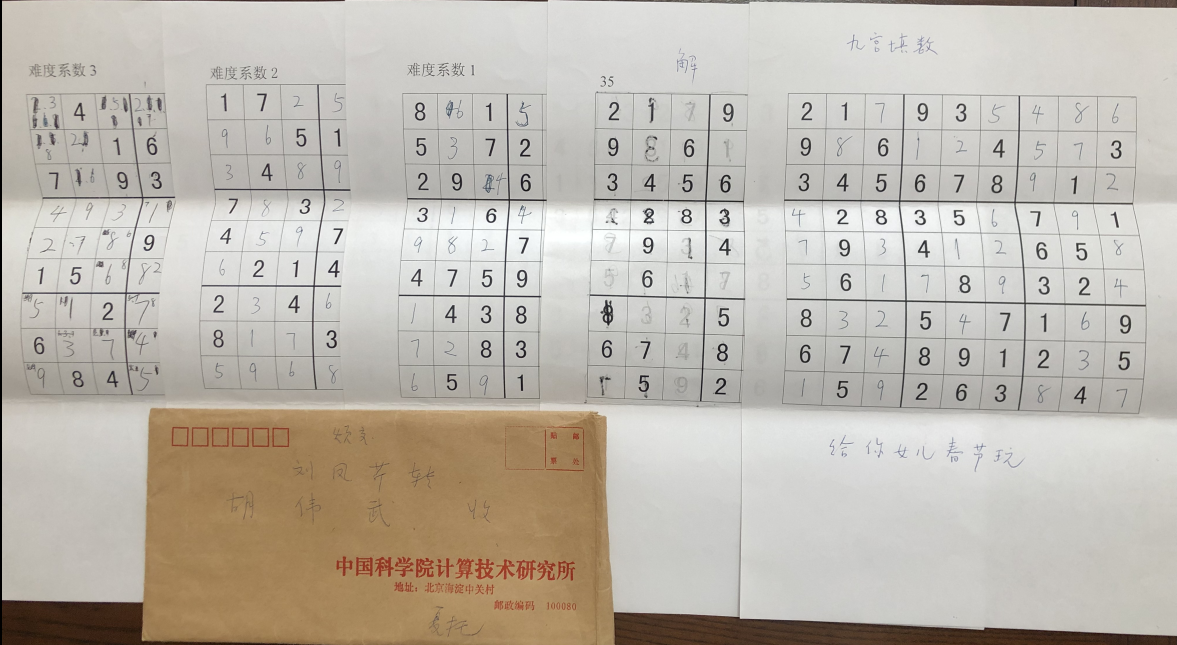 难度系数 3
4
1 6
7 9 3
4 9 3 1
2 7 8 9
1 5 6 8 2
5 1 2 7
6 3 7 4
9 8 4 5
难度系数 2
1 7 2 5
9 6 5 1
3 4 8 9
7 8 3 2
4 5 9 7
6 2 1 4
2 3 4 6
8 1 7 3
5 9 6 8
难度系数 1
8 6 1 5
5 3 7 2
2 9 4 6
3 1 6 4
9 8 2 7
4 7 5 9
1 4 3 8
7 2 8 3
6 5 9 1
解
35
2 1 7 9
9 8 6 1
3 4 5 6
4 2 8 3
7 9 3 4
5 6 1 7
8 3 2 5
6 7 4 8
1 5 9 2
九宫填数
2 1 7 9 3 5 4 8 6
9 8 6 1 2 4 5 7 3
3 4 5 6 7 8 9 1 2
4 2 8 3 5 6 7 9 1
7 9 3 4 1 2 6 5 8
5 6 1 7 8 9 3 2 4
8 3 2 5 4 7 1 6 9
6 7 4 8 9 1 2 3 5
1 5 9 2 6 3 8 4 7
给你女儿春节玩
贴 邮
票 处
烦交
刘凤芹 转
胡伟武 收
中国科学院计算技术研究所
地址：北京海淀中关村
邮政编码 100080
夏托